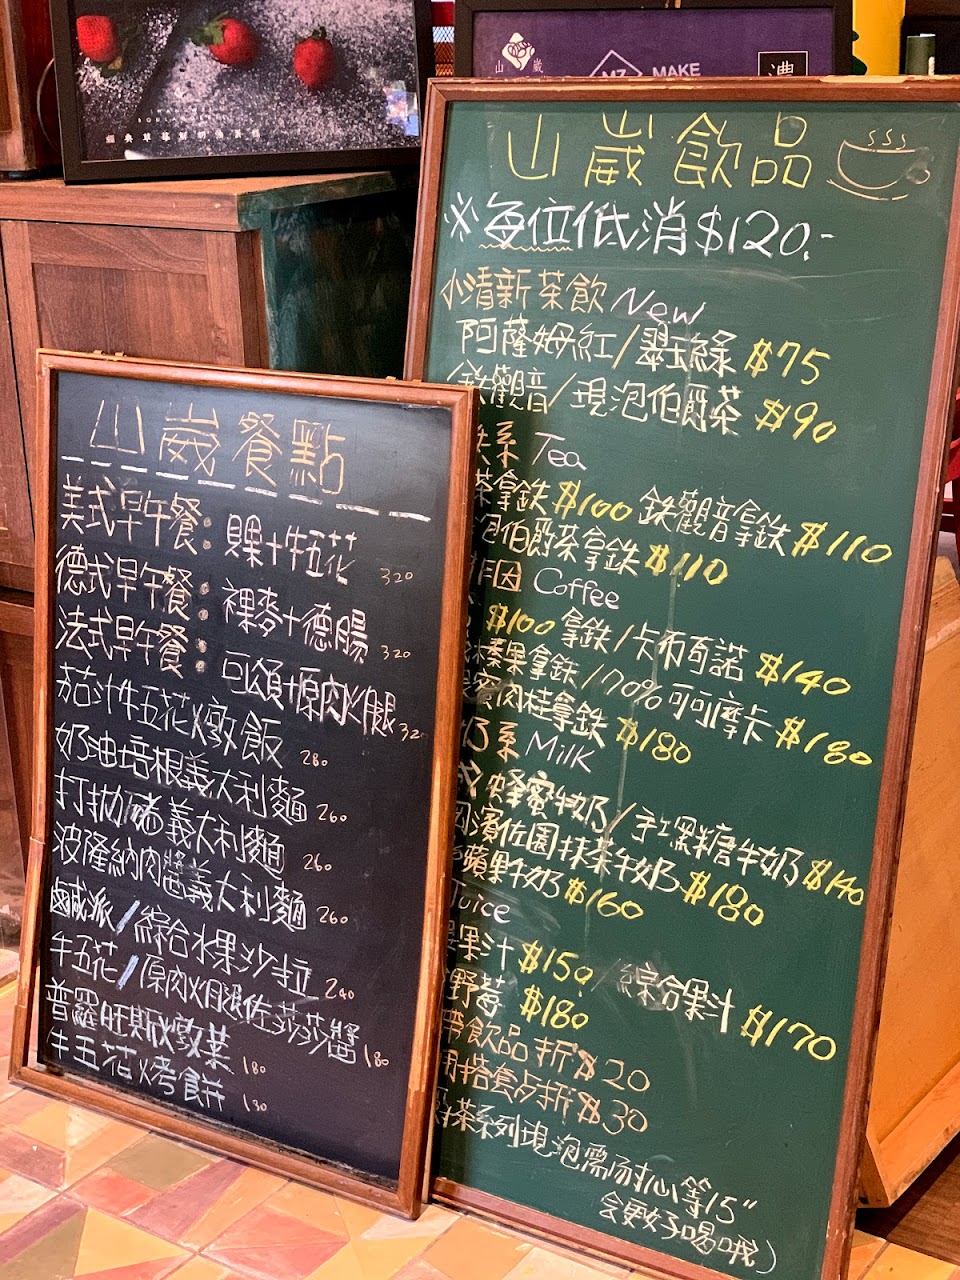 山崴
M7
MAKE
濃
山崴飲品
※每位低消$120.-
小清新茶飲 New
阿薩姆紅/翠玉綠 $75
鐵觀音/現泡伯爵茶 $90
系 Tea
茶拿鐵 $100 鐵觀音拿鐵 $110
泡伯爵茶拿鐵 $110
啡因 Coffee
$100 拿鐵/卡布奇諾 $140
榛果拿鐵/70%可可摩卡 $180
蜜肉桂拿鐵 $180
奶系 Milk
蜂蜜牛奶/手工黑糖牛奶 $140
濱佐園抹茶牛奶 $180
蘋果牛奶 $160
Juice
果汁 $150 / 綜合果汁 $170
野莓 $180
帶飲品折$20
用搭套点折$30
茶系列現泡需耐心等15"
會更好喝哦)
山崴餐點
美式早午餐:貝果+牛五花 320
德式早午餐:裸麥+德腸 320
法式早午餐:可頌+原肉火腿 320
茄汁牛五花燉飯 280
奶油培根義大利麵 260
打拋豬義大利麵 260
波隆納肉醬義大利麵 260
鹹派/綜合水果沙拉 240
牛五花/原肉火腿佐莎莎醬 180
普羅旺斯燉菜 180
牛五花烤餅 130